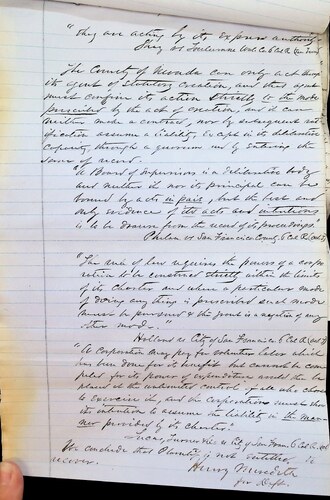 "they are acting by its express authority"
The County of Nevada can only act through
its agent of Statutory creation, and that agent
must confine its action strictly to the mode
prescribed by the act of creation, and it cannot
neither make a contract, nor by subsequent rat-
ification assume a liability, except in its deliberative
capacity, through a quorum and by entering the
same of record.
"A Board of Supervisors is a deliberative body
and neither it nor its principal can be
bound by acts in pais, but the best and
only evidence of its acts and intentions
is to be drawn from the record of its proceedings.
vs San Francisco County 6 Cal R
"The rule of law requires the powers of a corpo-
ration to be construed strictly within the limits
of its charter and when a particular mode
of doing any thing is prescribed such mode
must be pursued & the grant is a negation of any
other mode."
Holland vs City of San Francisco
"A corporation may pay for voluntary labor which
has been done for its benefit but cannot be com-
pelled, for its power of expenditure would then be
placed at the unlimited control of all who choose
to exercise it, and the corporation must show
its intention to assume the liability in the man-
ner provided by its charter."
vs City of San Fran. 6 Cal R
We conclude that Plaintiff is not entitled to
recover.
Henry Meredith
for Deft.